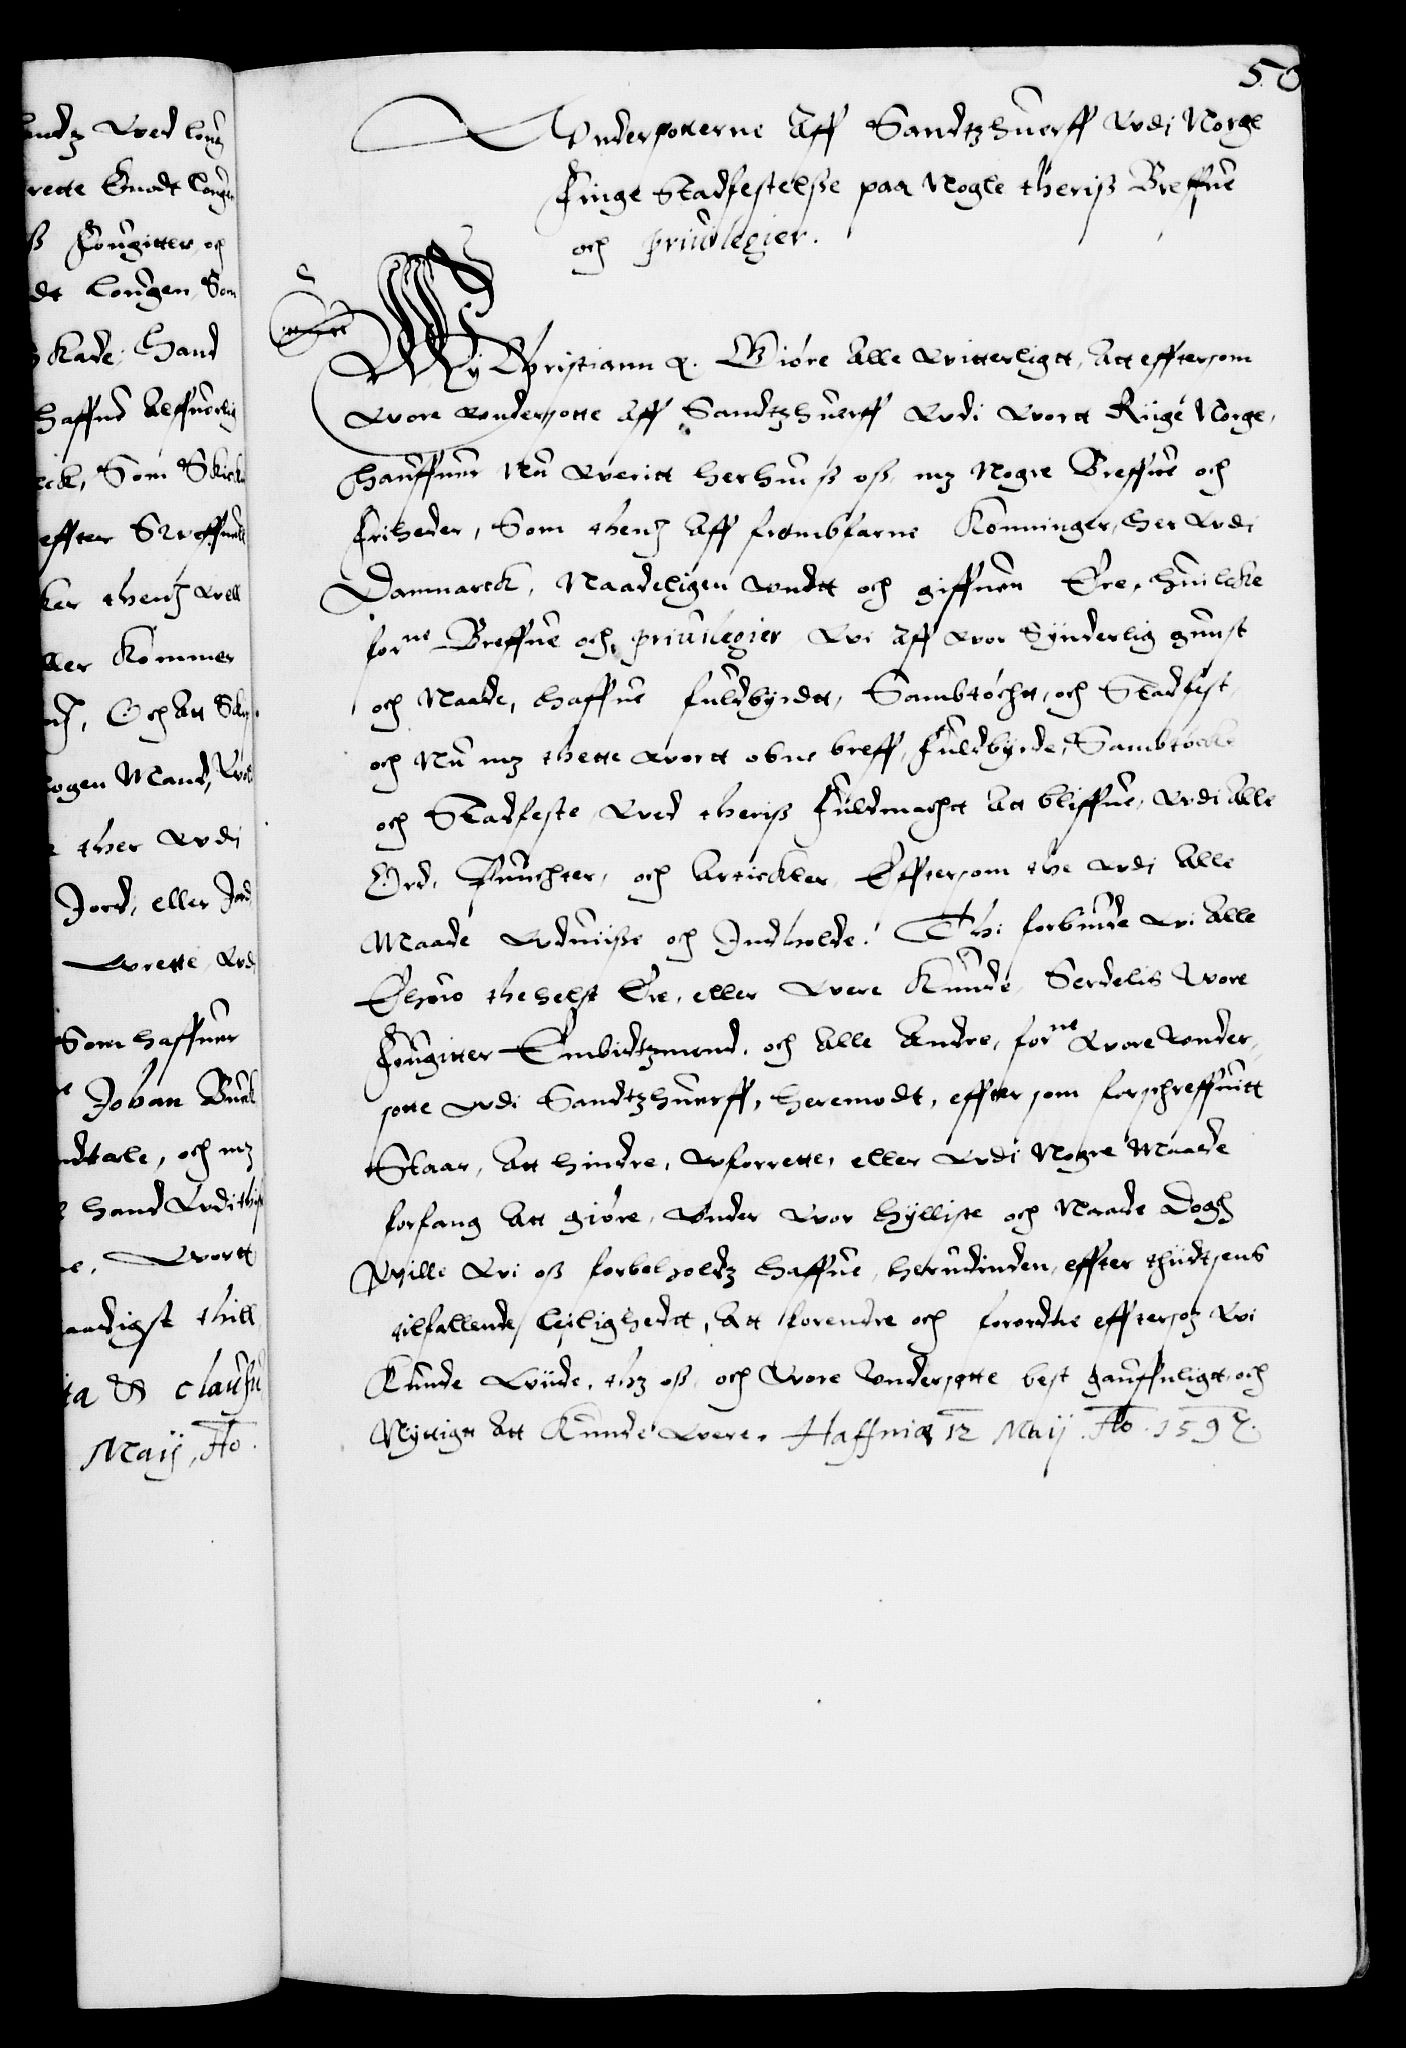 50
Wndersotterne Aff Sandtzhuerff Vdi Norge
Finge Stadfestelße paa Nogle theriß Breffue
och priuilegier.
Wy Christiann 4. Giöre Alle Witterligtt, Att efftersom
Wore Wndersotte Aff Sandtzhuerff Vdi Wortt Riige Norge,
haffuer Nu Weritt her huoß oß mz Nogre Breffue och
Friheder, Som thenom Aff frombfarne Konninger, her Vdi
Danmarck, Naadeligen Wndtt och giffuen Ere, huilcke
forne Breffue och priuilegier Wi Aff Wor Synderlig gunst
och Naade, haffue fuldbyrdtt, Sambtöchtt, och Stadfest,
och Nu mz thette Wortt obne breff, Fuldbyrde, Sambtöcke
och Stadfeste Wed theriß Fuldmachtt Att bliffue, Vdi Alle
Ord, Punchter, och Artickler Efftersom the Vdi Alle
Maade Vduiiße och Indholde. Thi forbiude Wi Alle
Ehuo thehelst Ere, eller Were Kunde, Serdelis Wore
Fougitter Embidtzmend, och Alle Andre, forne Wore Wnder-
sotte Vdi Sandtzhuerff, heremodt, effter som forschreffuitt
Staar, Att hindre, Wforrette, eller Vdi Nogre Maade
forfang Att giöre, Wnder Wor hylliste och Naade Dogh
Wille Wi oß forbeholdz haffue, herudinden, effter thiidsens
tilfallende Leilighedtt, Att forendre och forordne effterson Wi
Kunde Wiide, thz oß, och Wore Wndersotte best gauffnligtt, och
Nyttigtt Att Kunde Were. Haffniæ 12 Maij. Ao. 1597.
landz Wed loug
rette Knodt louge
ß Fougitter och
dt Lougen, Som
Kade, Hand
haffue Alffuerlig
Som Skick
effter
ker thenom Well
ller Kommer
Och Att
logen Mand,
ther Vdi
Jord, eller Jord
Wrette, Vdi
Som haffuer
Johan Buck
ndtale, och mz
hand Vdi
Wortt
aadigst thill
ta & clausu
Maij, Ao.